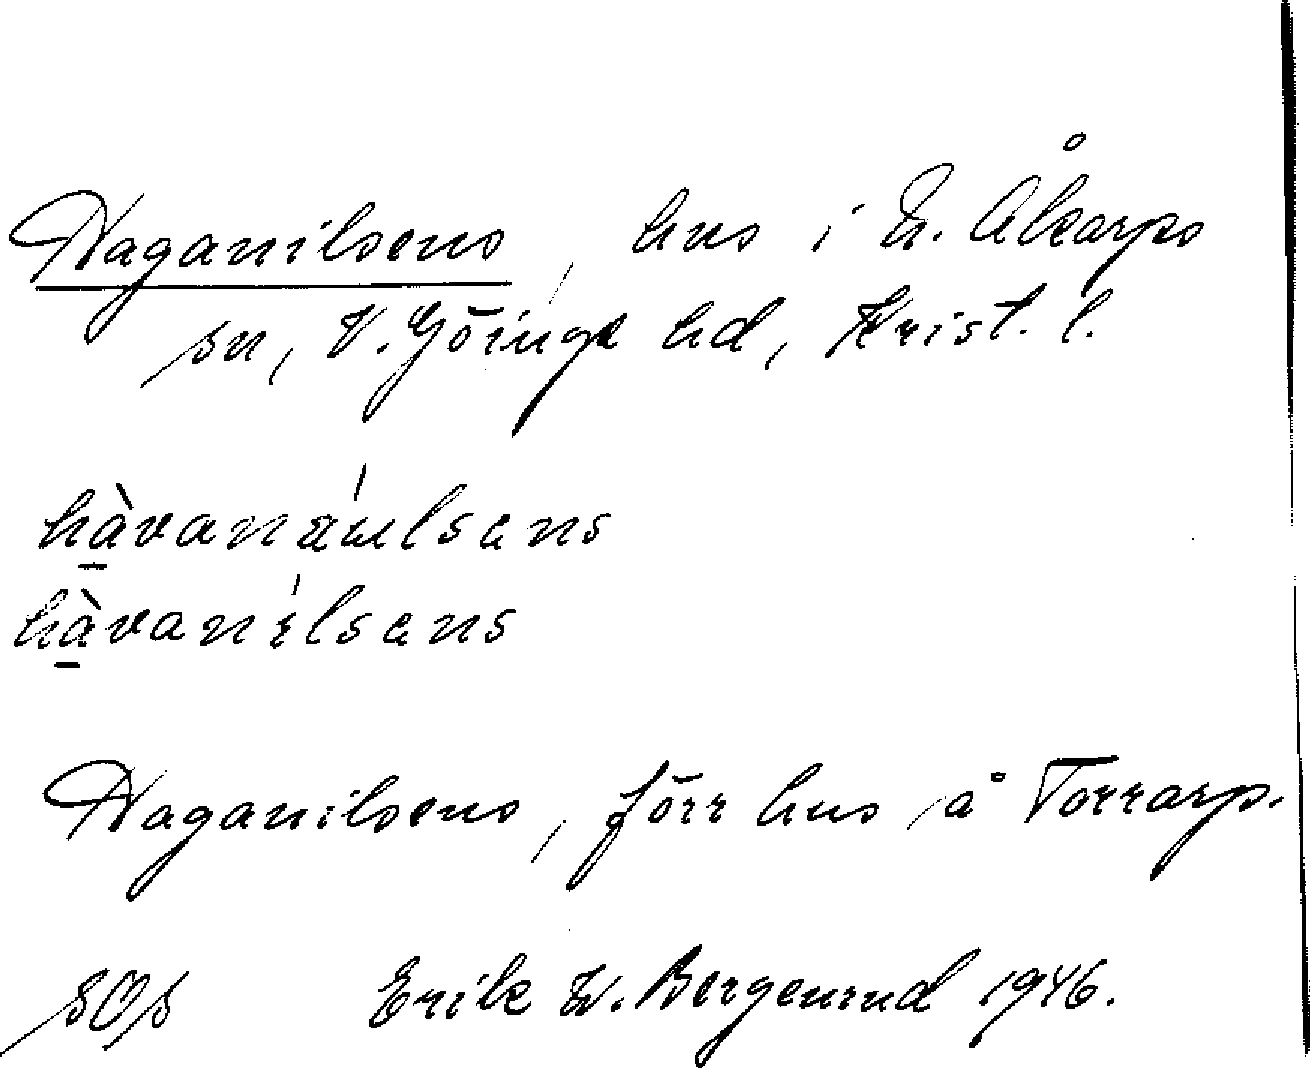 Haganilsens, hus i N. Åkarps
sn, V. Göinge hd, Krist. l.
hàvanǽilsens
hàvanílsens
Haganilsens, förr hus på Torrarp.
SOS Erik W. Bergenrud 1946.